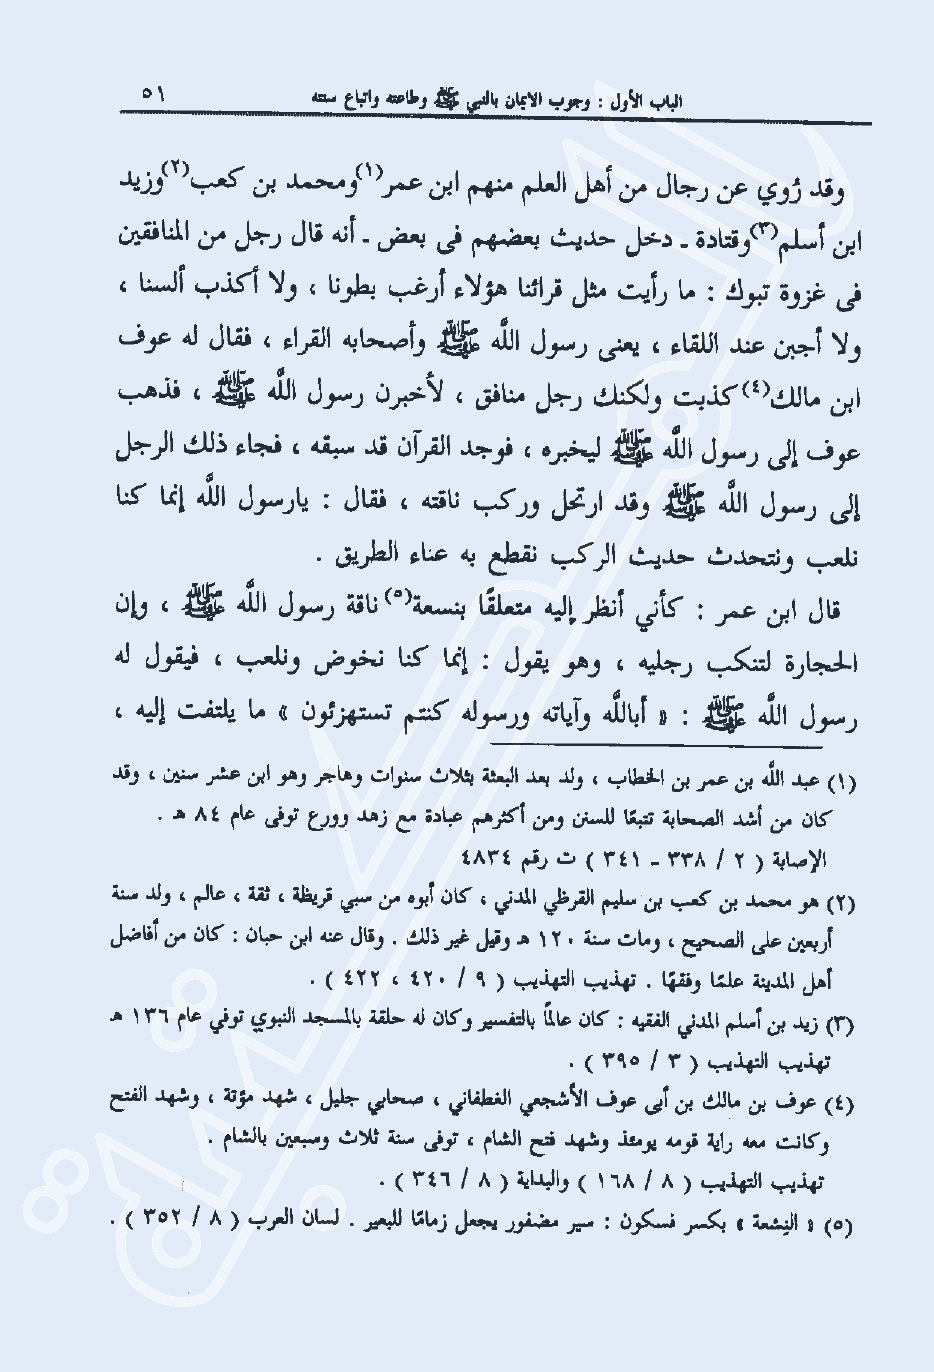 الباب الأول : وجوب الايمان بالنبي ﷺ وطاعته واتباع سنته ٥١
وقد رُوي عن رجال من أهل العلم منهم ابن عمر(١)ومحمد بن كعب(٢)وزيد
ابن أسلم(٣)وقتادة ـ دخل حديث بعضهم فى بعض ـ أنه قال رجل من المنافقين
فى غزوة تبوك : ما رأيت مثل قرائنا هؤلاء أرغب بطونا ، ولا أكذب ألسنا ،
ولا أجبن عند اللقاء ، يعنى رسول الله ﷺ وأصحابه القراء ، فقال له عوف
ابن مالك(٤) كذبت ولكنك رجل منافق ، لأخبرن رسول الله ﷺ ، فذهب
عوف إلى رسول الله ﷺ ليخبره ، فوجد القرآن قد سبقه ، فجاء ذلك الرجل
إلى رسول الله ﷺ وقد ارتحل وركب ناقته ، فقال : يارسول الله إنما كنا
نلعب ونتحدث حديث الركب نقطع به عناء الطريق .
قال ابن عمر : كأني أنظر إليه متعلقًا بنسعة(٥) ناقة رسول الله ﷺ ، وإن
الحجارة لتنكب رجليه ، وهو يقول : إنما كنا نخوض ونلعب ، فيقول له
رسول الله ﷺ : « أبالله وآياته ورسوله كنتم تستهزئون » ما يلتفت إليه ،
(١) عبد الله بن عمر بن الخطاب ، ولد بعد البعثة بثلاث سنوات وهاجر وهو ابن عشر سنين ، وقد
كان من أشد الصحابة تتبعًا للسنن ومن أكثرهم عبادة مع زهد وورع توفى عام ٨٤ هـ .
الإصابة ( ٢ / ٣٣٨ ـ ٣٤١ ) ت رقم ٤٨٣٤
(٢) هو محمد بن كعب بن سليم القرظي المدني ، كان أبوه من سبي قريظة ، ثقة ، عالم ، ولد سنة
أربعين على الصحيح ، ومات سنة ١٢٠ هـ وقيل غير ذلك . وقال عنه ابن حبان : كان من أفاضل
أهل المدينة علمًا وفقهًا . تهذيب التهذيب ( ٩ / ٤٢٠ ، ٤٢٢ ) .
(٣) زيد بن أسلم المدني الفقيه : كان عالمًا بالتفسير وكان له حلقة بالمسجد النبوي توفي عام ١٣٦ هـ
تهذيب التهذيب ( ٣ / ٣٩٥ ) .
(٤) عوف بن مالك بن أبى عوف الأشجعي الغطفاني ، صحابي جليل ، شهد مؤتة ، وشهد الفتح
وكانت معه راية قومه يومئذ وشهد فتح الشام ، توفى سنة ثلاث وسبعين بالشام .
تهذيب التهذيب ( ٨ / ١٦٨ ) والبداية ( ٨ / ٣٤٦ ) .
(٥) « النِسْعة » بكسر فسكون : سير مضفور يجعل زمامًا للبعير . لسان العرب ( ٨ / ٣٥٢ ) .